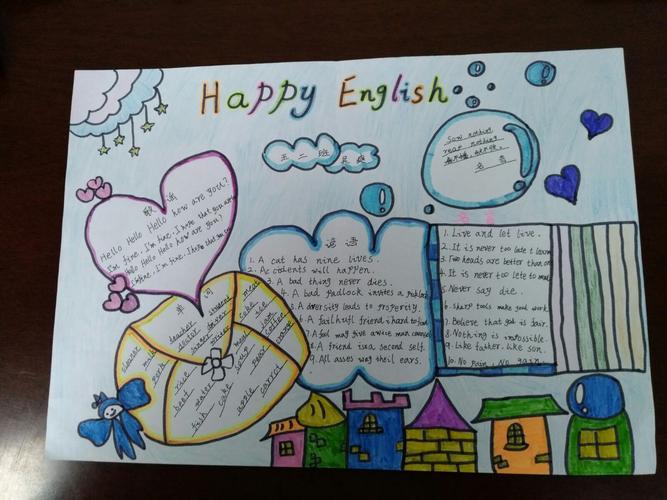 Happy English
五二班
Sow nothing
reap nothing
名言
歌谣
Hello Hello Hello how are you?
I'm fine. I'm fine. I hope that you are
Hello Hello Hello how are you?
I'm fine. I'm fine. I hope that
谚语
1. A cat has nine lives.
2. Accidents will happen.
3. A bad thing never dies.
4. A bad padlock invites a
5. Adversity leads to
6. A friend is hard to find
7. A fool may give a wise man
8. A friend is a second self.
9. All asses wag their ears.
名言
1. Live and let live.
2. It is never too late to learn
3. Two heads are better than one
4. It is never too late to
5. Never say die.
6. Sharp tools make good work.
7. Believe that god is fair.
8. Nothing is impossible.
9. Like father, like son.
10. No pain, No gain.
单词
cleaner
math
pork
teacher
doctor
farmer
student
driver
meat
cake
rice
beef
water
fish
cake
meat
tea
apple
pear
coffee
orange
carrot